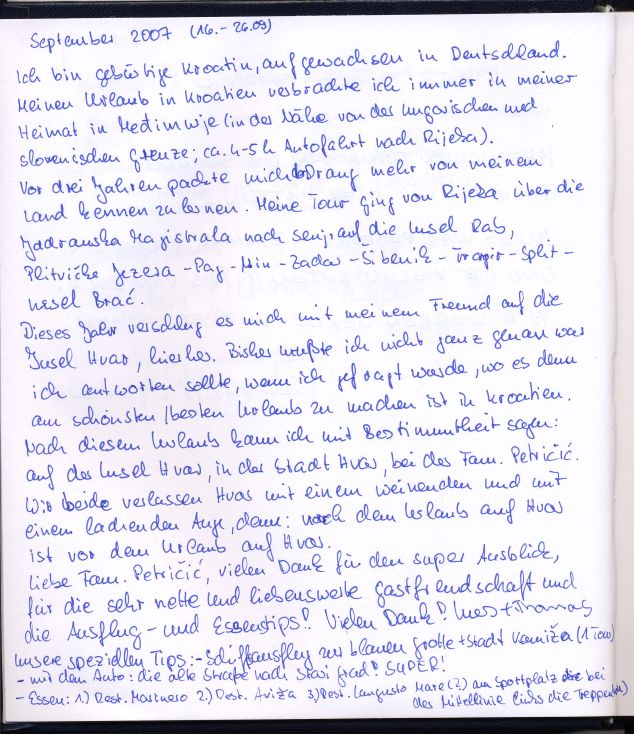 September 2007 (16.-26.09)
Ich bin gebürtige Kroatin, aufgewachsen in Deutschland.
Meinen Urlaub in Kroatien verbrachte ich immer in meiner
Heimat in Međimurje (in der Nähe von der ungarischen und
slovenischen Grenze; ca. 4-5h Autofahrt nach Rijeka).
Vor drei Jahren packte mich der Drang mehr von meinem
Land kennen zu lernen. Meine Tour ging von Rijeka über die
Jadranska Magistrala nach Senj, auf die Insel Rab,
Plitvička Jezera - Pag - Nin - Zadar - Šibenik - Trogir - Split -
Insel Brač.
Dieses Jahr verschlug es mich mit meinem Freund auf die
Insel Hvar, hierher. Bisher wußte ich nicht ganz genau was
ich antworten sollte, wenn ich gefragt wurde, wo es denn
am schönsten/besten Urlaub zu machen ist in Kroatien.
Nach diesem Urlaub kann ich mit Bestimmtheit sagen:
auf der Insel Hvar, in der Stadt Hvar, bei der Fam. Petričić.
Wir beide verlassen Hvar mit einem weinenden und mit
einem lachenden Auge, denn: nach dem Urlaub auf Hvar
ist vor dem Urlaub auf Hvar.
Liebe Fam. Petričić, vielen Dank für den super Ausblick,
für die sehr nette und liebenswerte Gastfreundschaft und
die Ausflug- und Essenstips! Vielen Dank! Ines + Thomas
Unsere speziellen Tips: - Schiffsausflug zur blauen Grotte + Stadt Komiža (1 Tag)
- mit dem Auto: die alte Straße nach Stari Grad! SUPER!
- Essen: 1.) Rest. Marinero 2.) Rest. Aviža 3.) Rest. Lungusto Mare (?) am Sportplatz bei
der Mittellinie links die Treppe